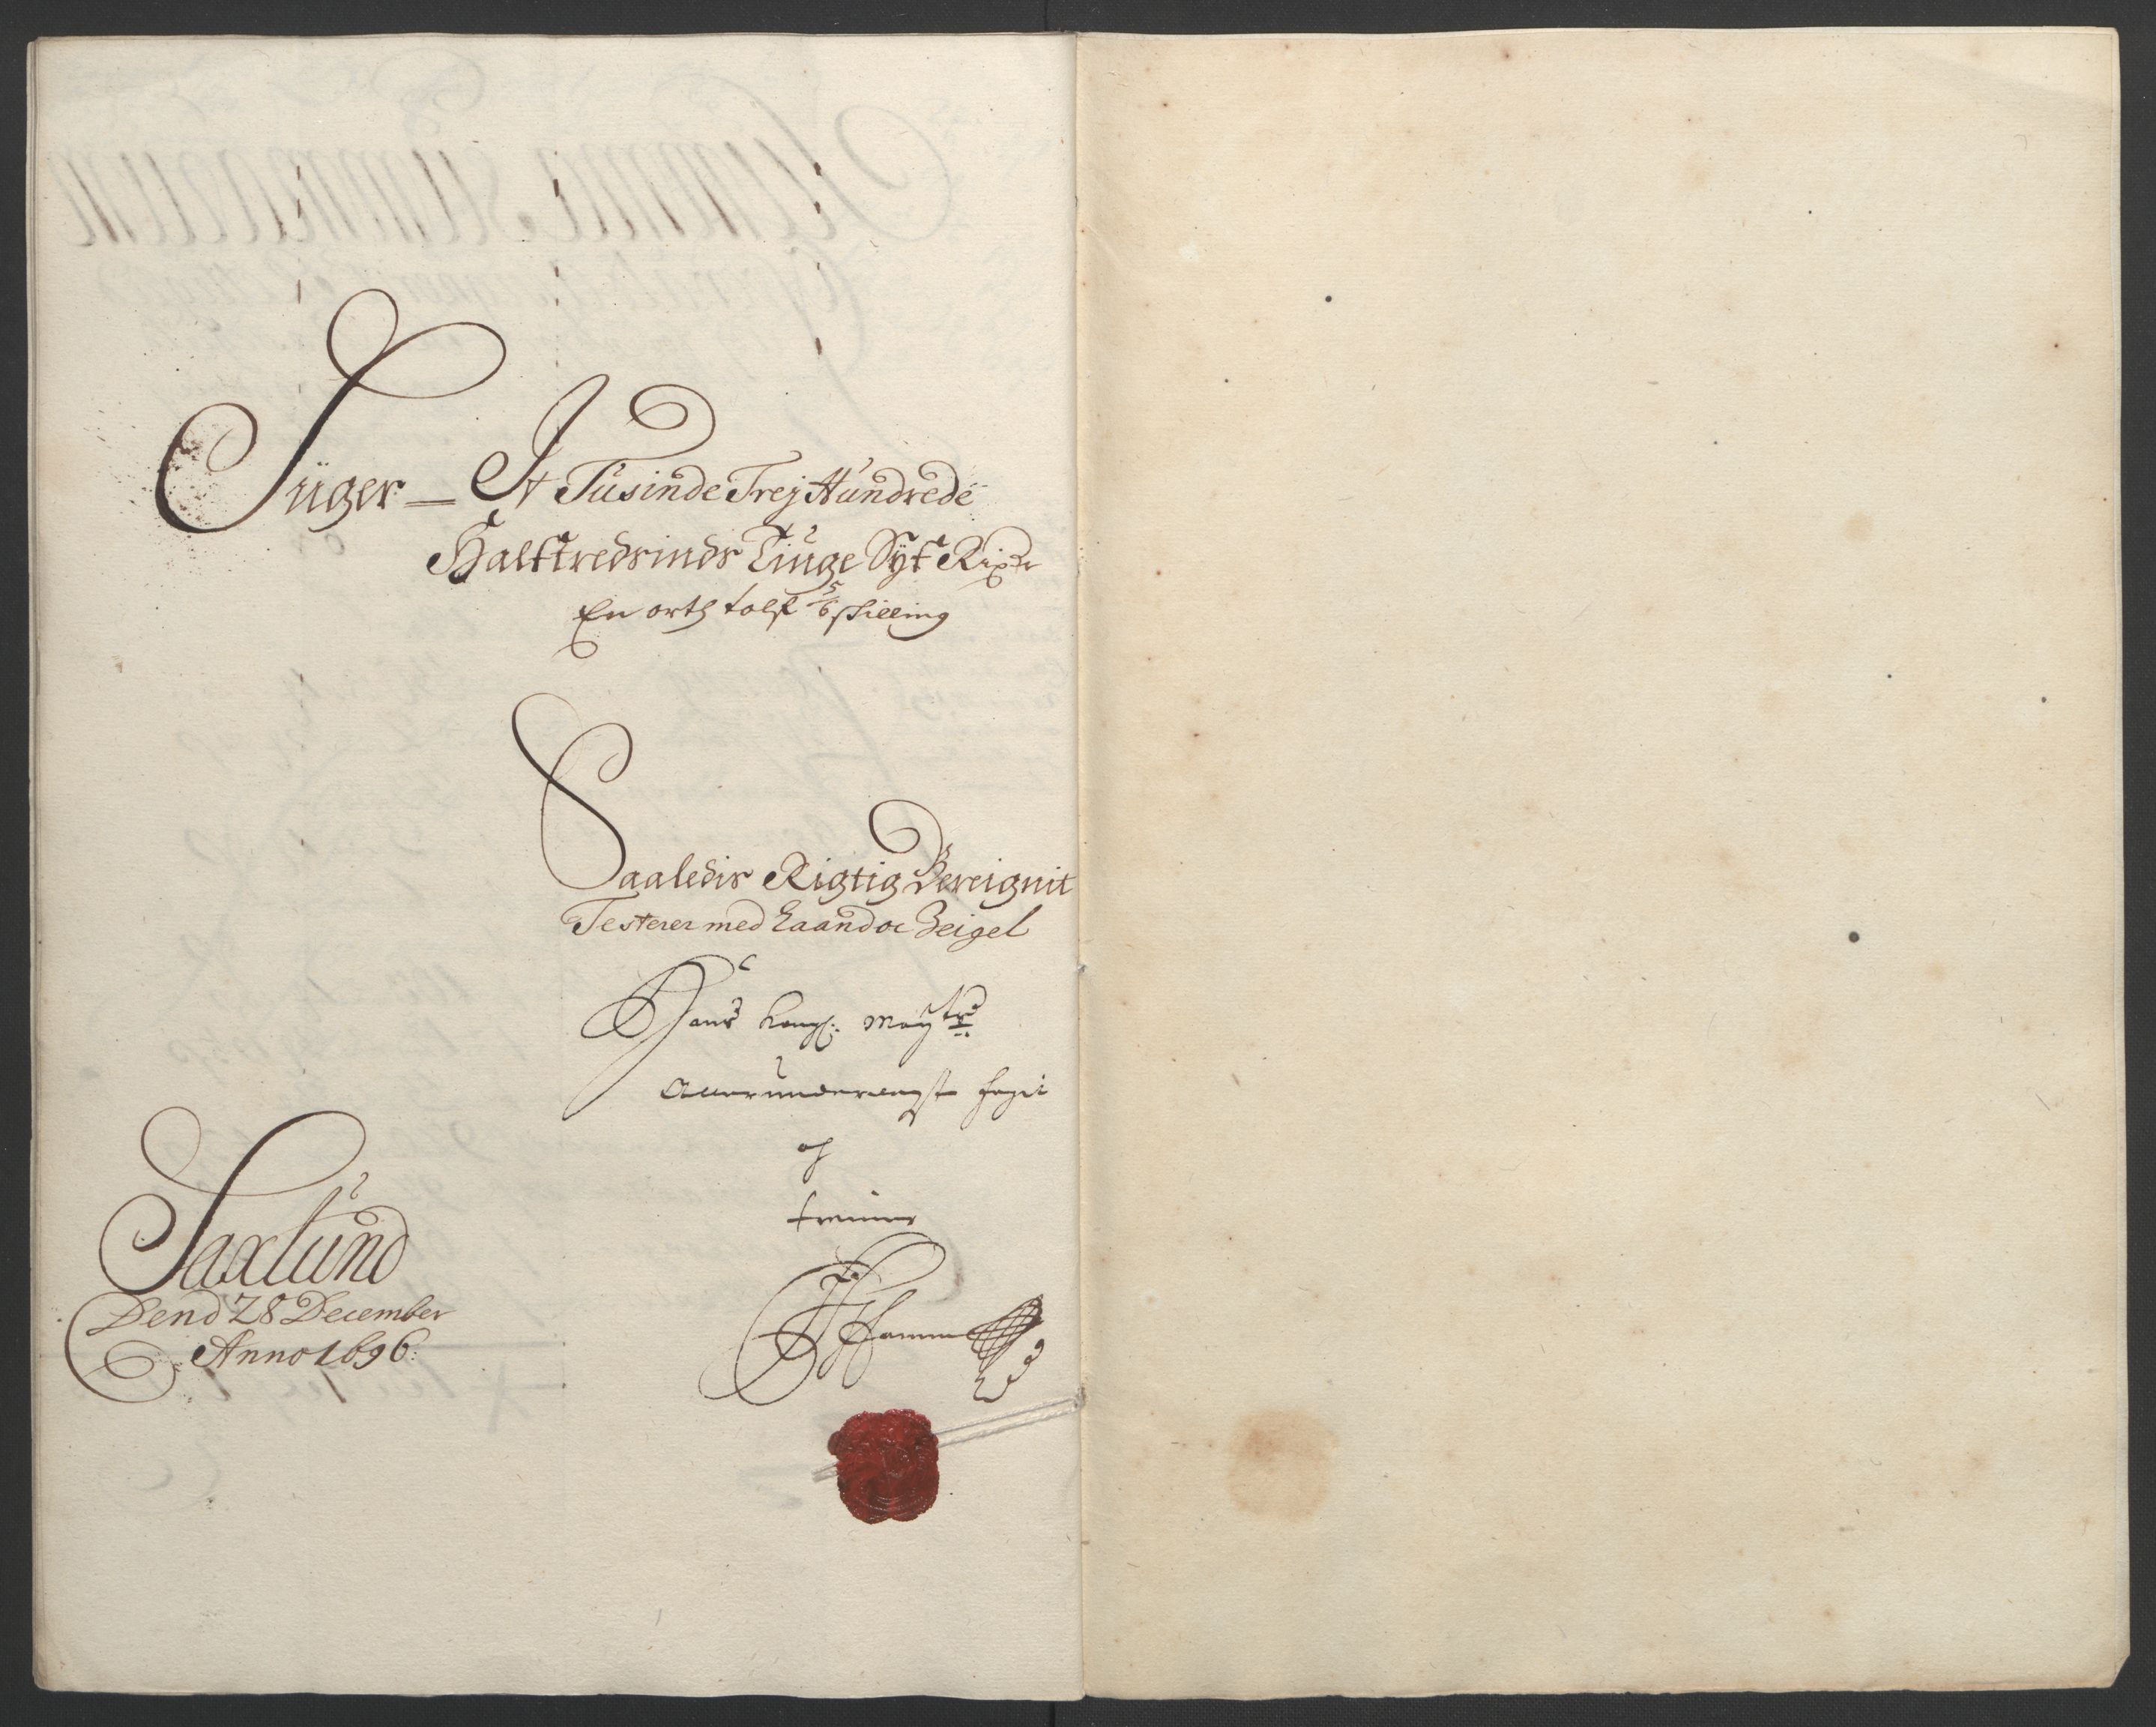 Siiger — It Tusinde Trej Hundrede
Halftredsinds Tiuge Syf Rixdr
En orth tolf 5/6 shilling
Saaledis Rigtig Bereignit
Testerer med Haand oc Zeigel
Hans Kongl: Maytz
Allerunderdnigste
og
Saxlund
Dend 28 December
Anno 1696: